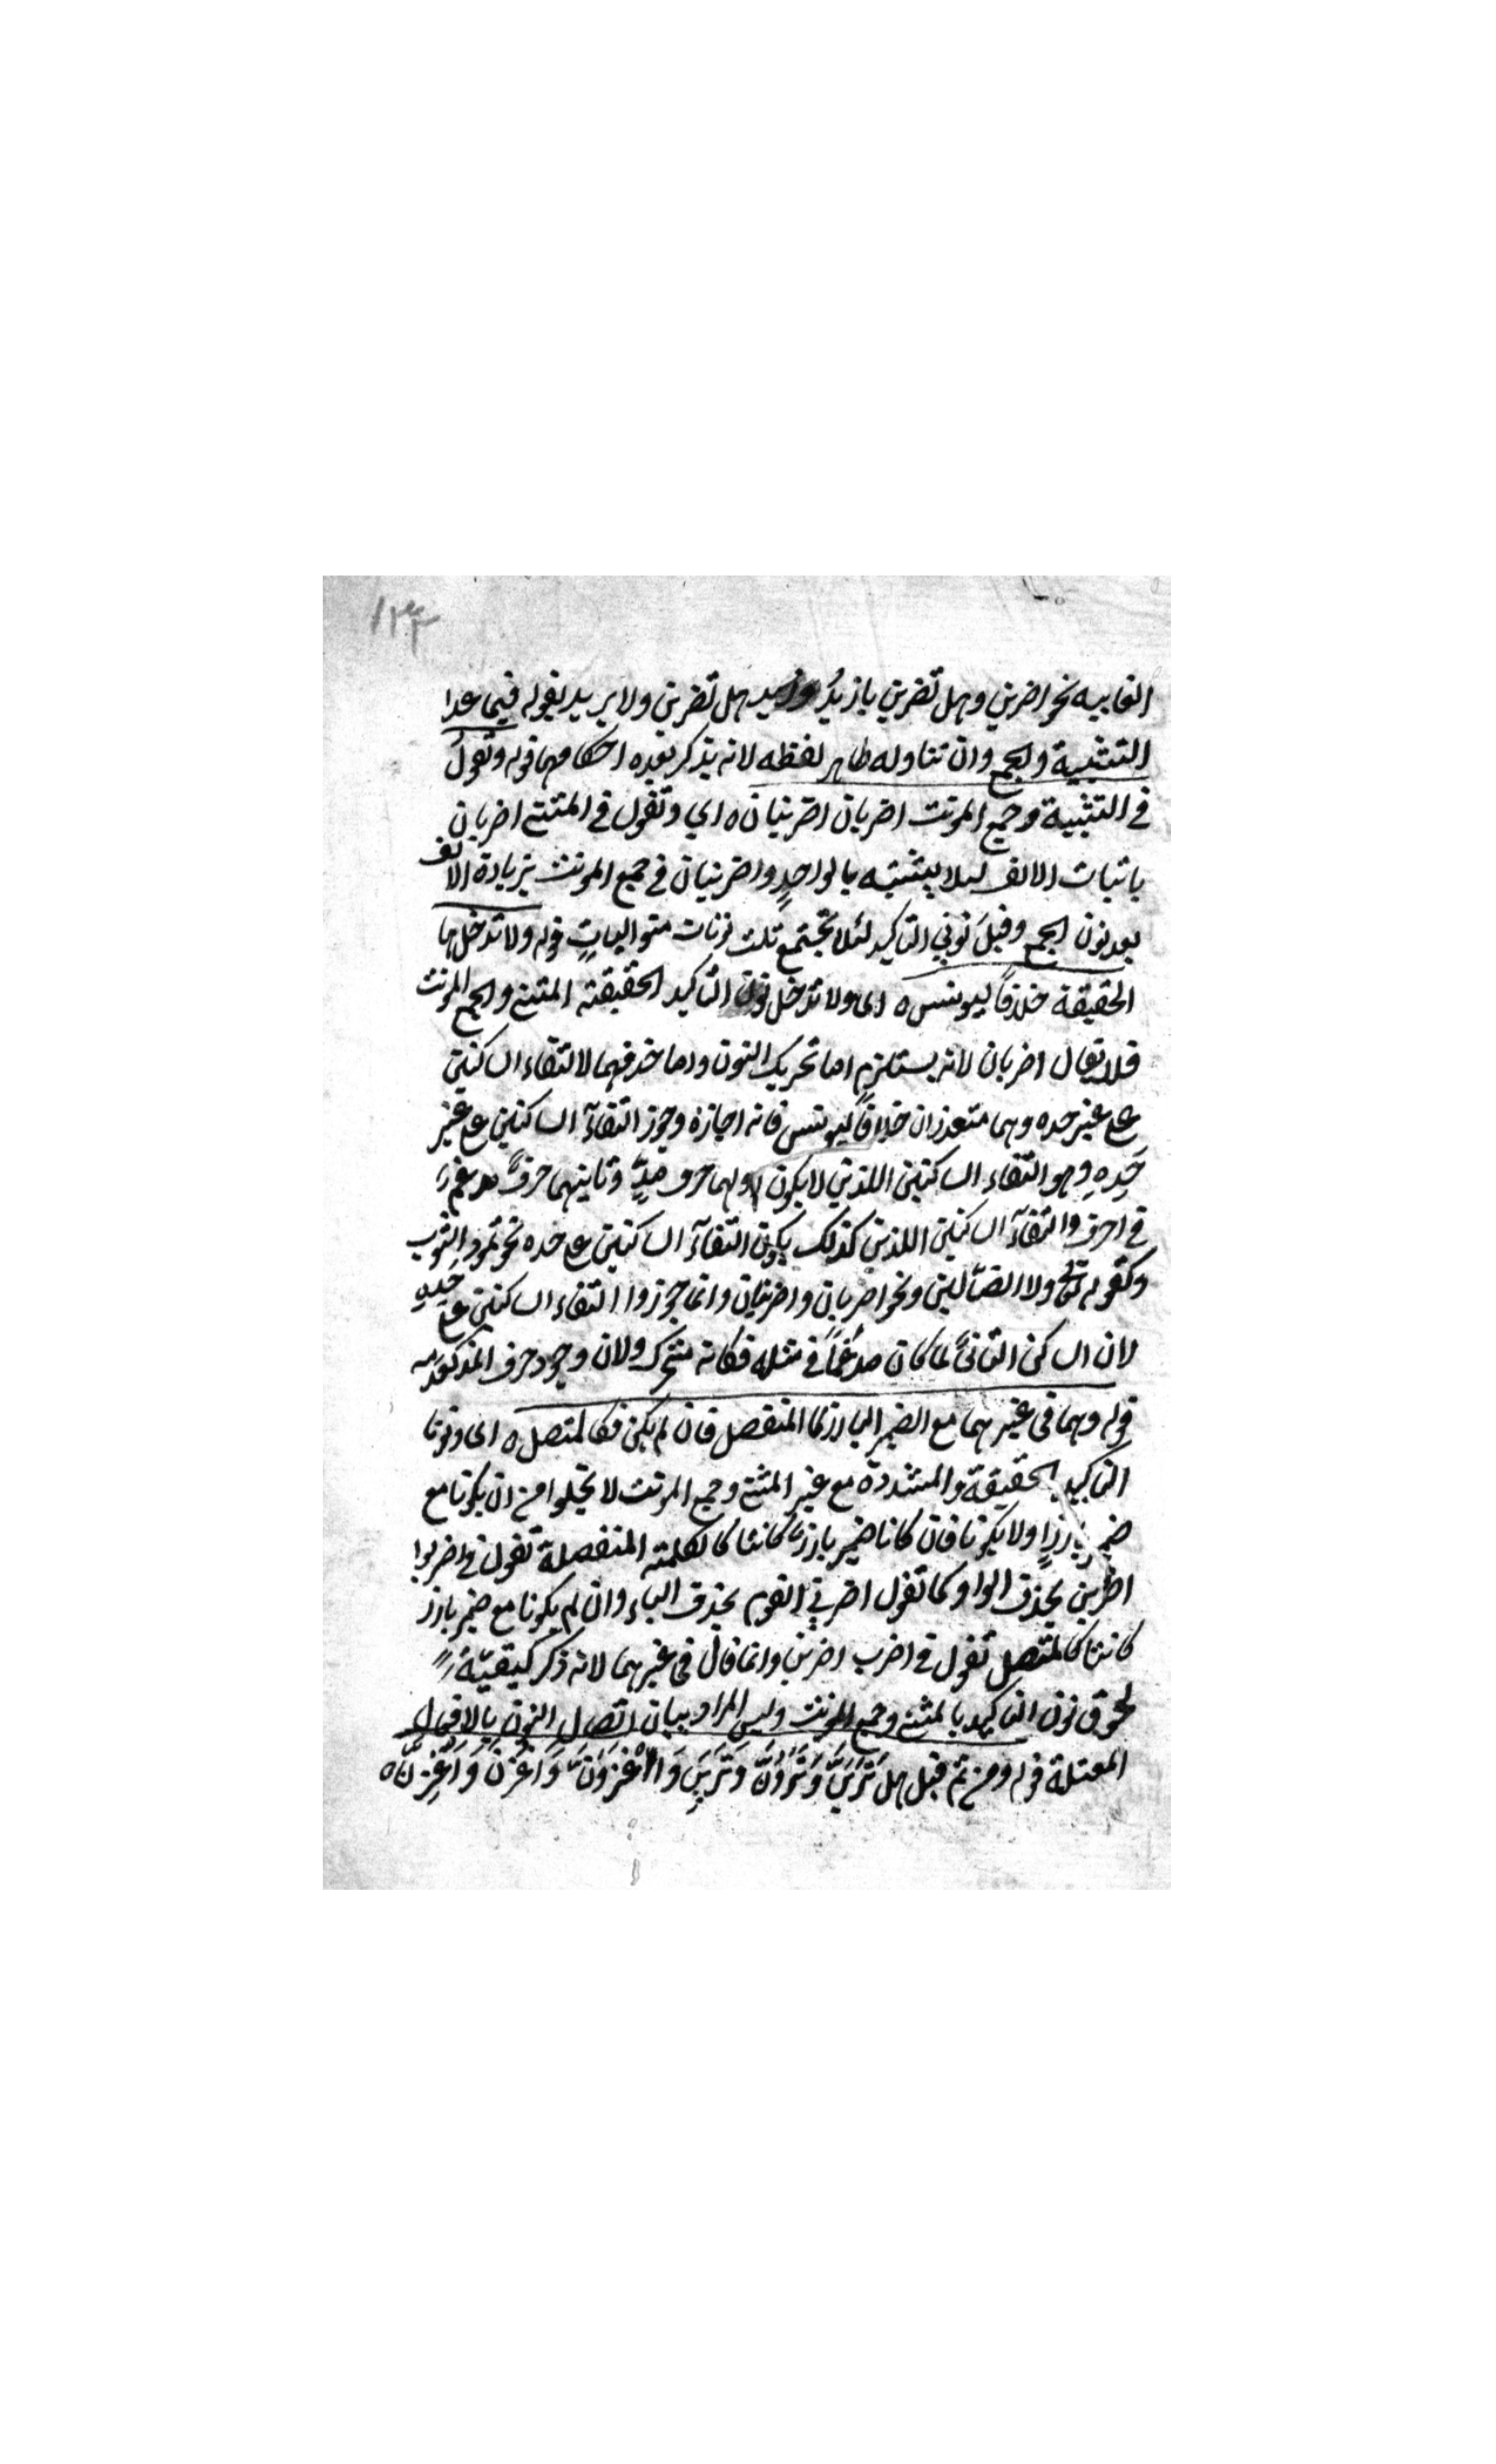 ١٣٣
الغايبه نحو اضربن وهل تضربن يا زيد وزيد هل تضربن ولا يريد بقوله فيما عدا
التثنية والجمع وان تناوله ظاهر لفظه لانه يذكر بعده احكامهما قوله وتقول
في التثنية وجمع المونث اضربان اضربنان ه اي وتقول في المثنى اضربان
باثبات الالف ليلا يشتبه بالواحدٍ واضربنان في جمع المونث بزيادة الالف
بعد نون الجمع وقبلَ نوني التاكيد لئلا تجتمع ثلث نونات متوالياتٍ قوله ولا تدخلهما
الخفيفة خلافاً ليونس ه اى ولا تدخل نون التاكيد الخفيفة المثنى والجمع المونث
فلا يقال اضربان لانه يستلزم اما تحريك النون واما حذفهما لالتقاء الساكنين
على غير حده وهما متعذران خلافاً ليونس فانه اجازه وجوز التقآء الساكنين على غير
حَدِهِ وهو التقاء الساكنين اللذين لا يكون اولهما حرف مدٍّ وثانيهما حرفٌ مدغم
في احرف والتقآء الساكنين اللذين كذلك يكون التقآء الساكنين على حده نحو تمود الثوب
وكقوله تعالى ولا الضّالين ونحو اضربان واضربنان وانما جوزوا التقاء الساكنين على حَدِهِ
لان الساكن الثانىَ لما كان مدغماً في مثله فكانه متحرك ولان وجود حرف المذكور مد
قوله وهما فى غيرهما مع الضمير البارز كالمنفصل فان لم يكن فكالمتصل ه اى ونونا
التاكيد الخفيفة والمشددة مع غير المثنى وجمع المونث لا يخلوا من ان يكونا مع
ضمير بارزٍ اولا يكونا فان كانا ضمير بارز كانتا كالكلمة المنفصلة تقول في اضربوا
اضربن بحذف الواو كما تقول اضربي القوم بحذف الياء وان لم يكونا مع ضمير بارز
كانتا كالمتصل تقول في اضرب اضربن وانما قال فى غيرهما لانه ذكر كيفيّة
لحوق نون التاكيد بالمثنى وجمع المونث وليس المراد بيان اتصال النون بالافعال
المعتلة قوله ومن ثم قيل هل تَرَيَنَّ وَتَرَوُنَّ وَتَرَيِنَّ وَاغْزُوَنَّ وَاغْزُنَّ وَاغْزِنَّ ه